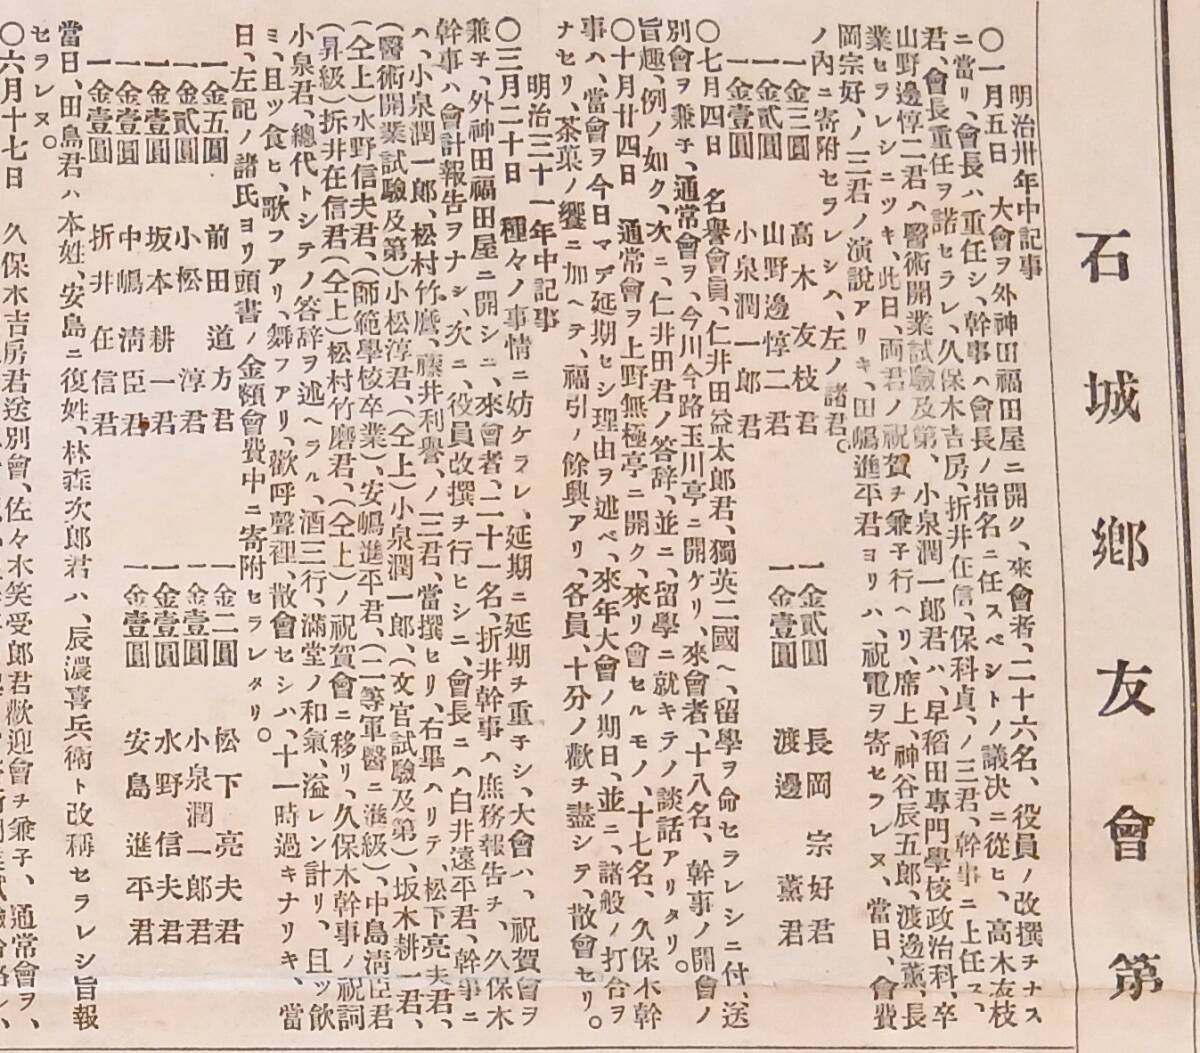 石城鄉友會第
明治卅年中記事
〇一月五日　大會ヲ外神田福田屋ニ開ク、來會者、二十六名、役員ノ改撰ヲナス
ニ當リ、會長ハ重任シ、幹事ハ會長ノ指名ニ任スベシトノ議決ニ從ヒ、高木友枝
君、會長重任ヲ諾セラレ、久保木吉房、折井在信、保科貞、ノ三君、幹事ニ上任ス、
山野邊惇二君ハ醫術開業試驗及第、小泉潤一郎君ハ、早稻田專門學校政治科、卒
業セラレシニツキ、此日、両君ノ祝賀ヲ兼子行ヘリ、席上、神谷辰五郎、渡邊薰、長
岡宗好、ノ三君ノ演說アリキ、田嶋進平君ヨリハ、祝電ヲ寄セラレヌ、當日、會費
ノ內ニ寄附セラレシハ、左ノ諸君。
一金三圓　高木友枝君　一金貳圓　長岡宗好君
一金貳圓　山野邊惇二君　一金壹圓　渡邊薰君
一金壹圓　小泉潤一郎君
〇七月四日　名譽會員、仁井田益太郎君、獨英二國ヘ、留學ヲ命セラレシニ付、送
別會ヲ兼子、通常會ヲ、今川今路玉川亭ニ開ケリ、來會者、十八名、幹事ノ開會ノ
旨趣、例ノ如ク、次ニ、仁井田君ノ答辞、並ニ、留學ニ就キテノ談話アリタリ。
〇十月廿四日　通常會ヲ上野無極亭ニ開ク、來リ會セルモノ、十七名、久保木幹
事ハ、當會ヲ今日マデ延期セシ理由ヲ述ベ、來年大會ノ期日、並ニ、諸般ノ打合ヲ
ナセリ、茶菓ノ饗ニ加ヘテ、福引ノ餘興アリ、各員、十分ノ歡ヲ盡シテ、散會セリ。
明治三十一年中記事
〇三月二十日　種々ノ事情ニ妨ケラレ、延期ニ延期ヲ重子シ、大會ハ、祝賀會ヲ
兼子、外神田福田屋ニ開シニ、來會者、二十一名、折井幹事ハ庶務報告ヲ、久保木
幹事ハ會計報告ヲナシ、次ニ、役員改撰ヲ行ヒシニ、會長ニハ白井遠平君、幹事ニ
ハ、小泉潤一郎、松村竹麿、藤井利譽、ノ三君、當撰セリ、右畢ハリテ、松下亮夫君、
（醫術開業試驗及第）小松淳君、（仝上）小泉潤一郎、（文官試驗及第）、坂本耕一君、
（仝上）水野信夫君、（師範學校卒業）、安嶋進平君、（二等軍醫ニ進級）、中島淸臣君
（昇級）折井在信君（仝上）松村竹磨君、（仝上）ノ祝賀會ニ移リ、久保木幹事ノ祝詞
小泉君、總代トシテノ答辞ヲ述ヘラル、酒三行、滿堂ノ和氣、溢レン計リ、且ッ飮
ミ、且ツ食ヒ、歌フアリ、舞フアリ、歡呼聲裡、散會セシハ、十一時過キナリキ、當
日、左記ノ諸氏ヨリ頭書ノ金額會費中ニ寄附セラレタリ。
一金五圓　前田道方君　一金二圓　松下亮夫君
一金貳圓　小松淳君　一金壹圓　小泉潤一郎君
一金壹圓　坂本耕一君　一金壹圓　水野信夫君
一金壹圓　中嶋淸臣君　一金壹圓　安島進平君
一金壹圓　折井在信君
當日、田島君ハ本姓、安島ニ復姓、林森次郎君ハ、辰濃喜兵衞ト改稱セラレシ旨報
セラレヌ。
〇六月十七日　久保木吉房君送別會、佐々木笑受郎君歡迎會ヲ兼子、通常會ヲ、